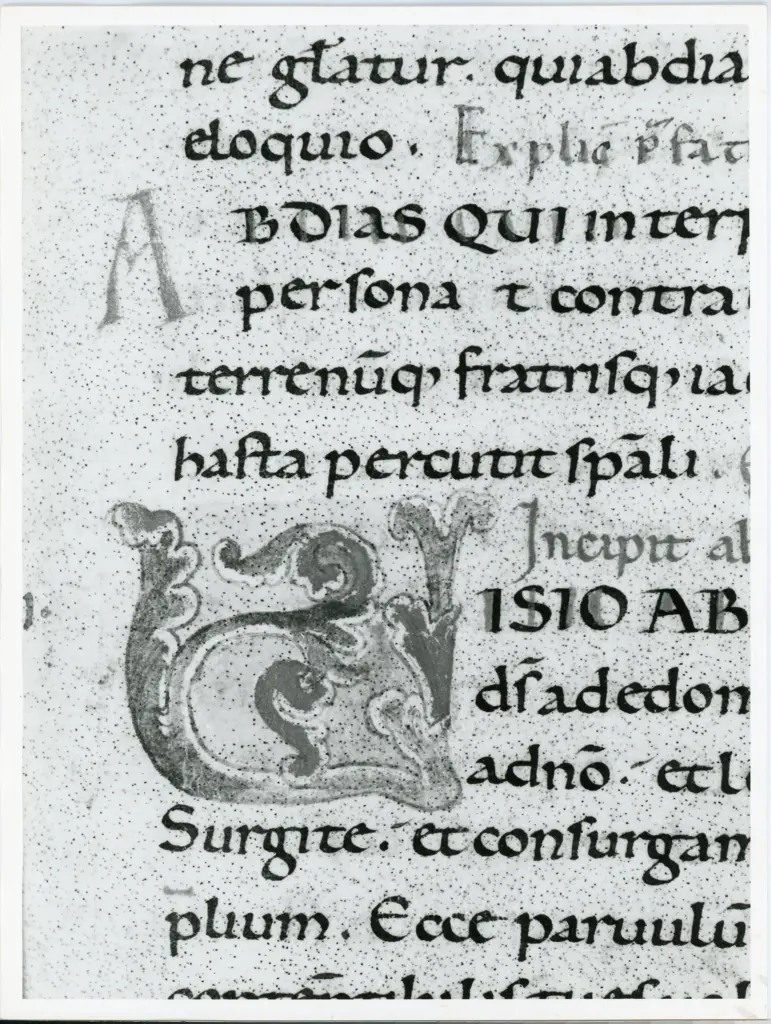 ne głatur. quiabdia
eloquio. Explič p̃fat
ABDIAS QUI interp
perſona t contra
terrenūq; fratriſq; ia
haſta percutit ſpāli.
Incipit ab
VISIO AB
dſ̄ adedom
adnō. et
Surgite. et conſurgam
p̄lium. Ecce paruulū